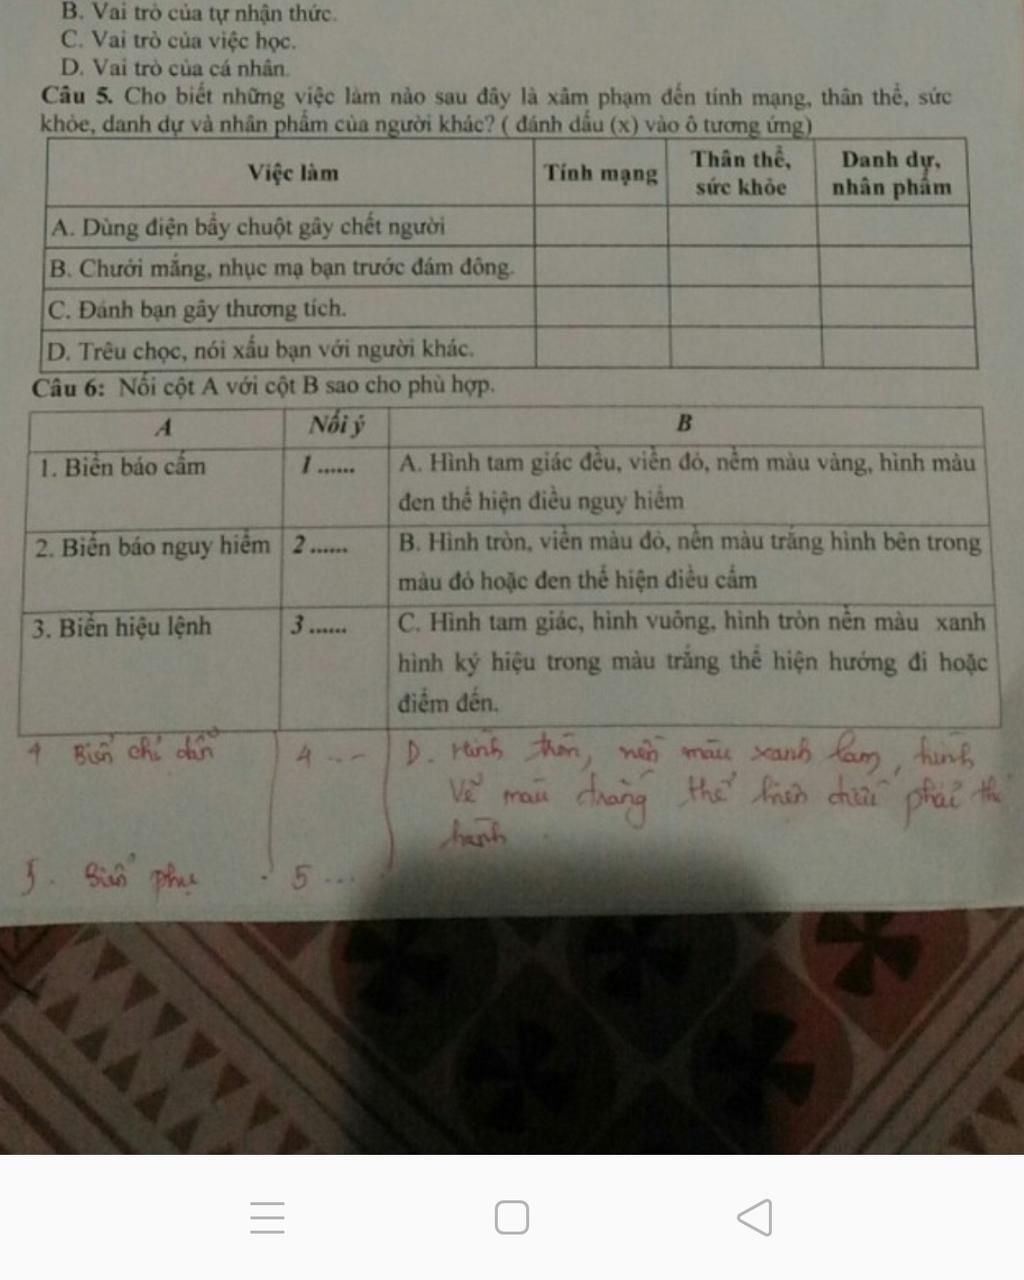 B. Vai trò của tự nhận thức.
C. Vai trò của việc học.
D. Vai trò của cá nhân.
Câu 5. Cho biết những việc làm nào sau đây là xâm phạm đến tính mạng, thân thể, sức
khỏe, danh dự và nhân phẩm của người khác? ( đánh dấu (x) vào ô tương ứng)
Việc làm Tính mạng Thân thể, sức khỏe Danh dự, nhân phẩm
A. Dùng điện bẫy chuột gây chết người
B. Chưởi mắng, nhục mạ bạn trước đám đông.
C. Đánh bạn gây thương tích.
D. Trêu chọc, nói xấu bạn với người khác.
Câu 6: Nối cột A với cột B sao cho phù hợp.
A Nối ý B
1. Biển báo cấm 1 ...... A. Hình tam giác đều, viền đỏ, nềm màu vàng, hình màu
đen thể hiện điều nguy hiểm
2. Biển báo nguy hiểm 2 ...... B. Hình tròn, viền màu đỏ, nền màu trắng hình bên trong
màu đỏ hoặc đen thể hiện điều cấm
3. Biển hiệu lệnh 3 ...... C. Hình tam giác, hình vuông, hình tròn nền màu xanh
hình ký hiệu trong màu trắng thể hiện hướng đi hoặc
điểm đến.
4 Biển chỉ dẫn 4 ... D. Hình tròn, nền màu xanh lam, hình
vẽ màu trắng thể hiện điều phải thi
hành
5. Biển phụ 5 ...